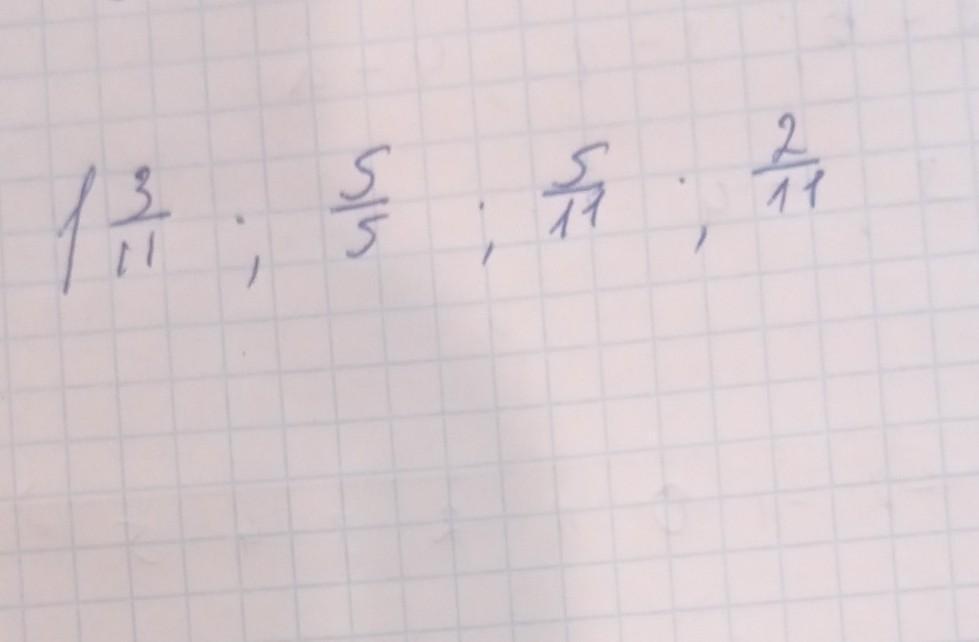 1 3/11 ; 5/5 ; 5/11 ; 2/11